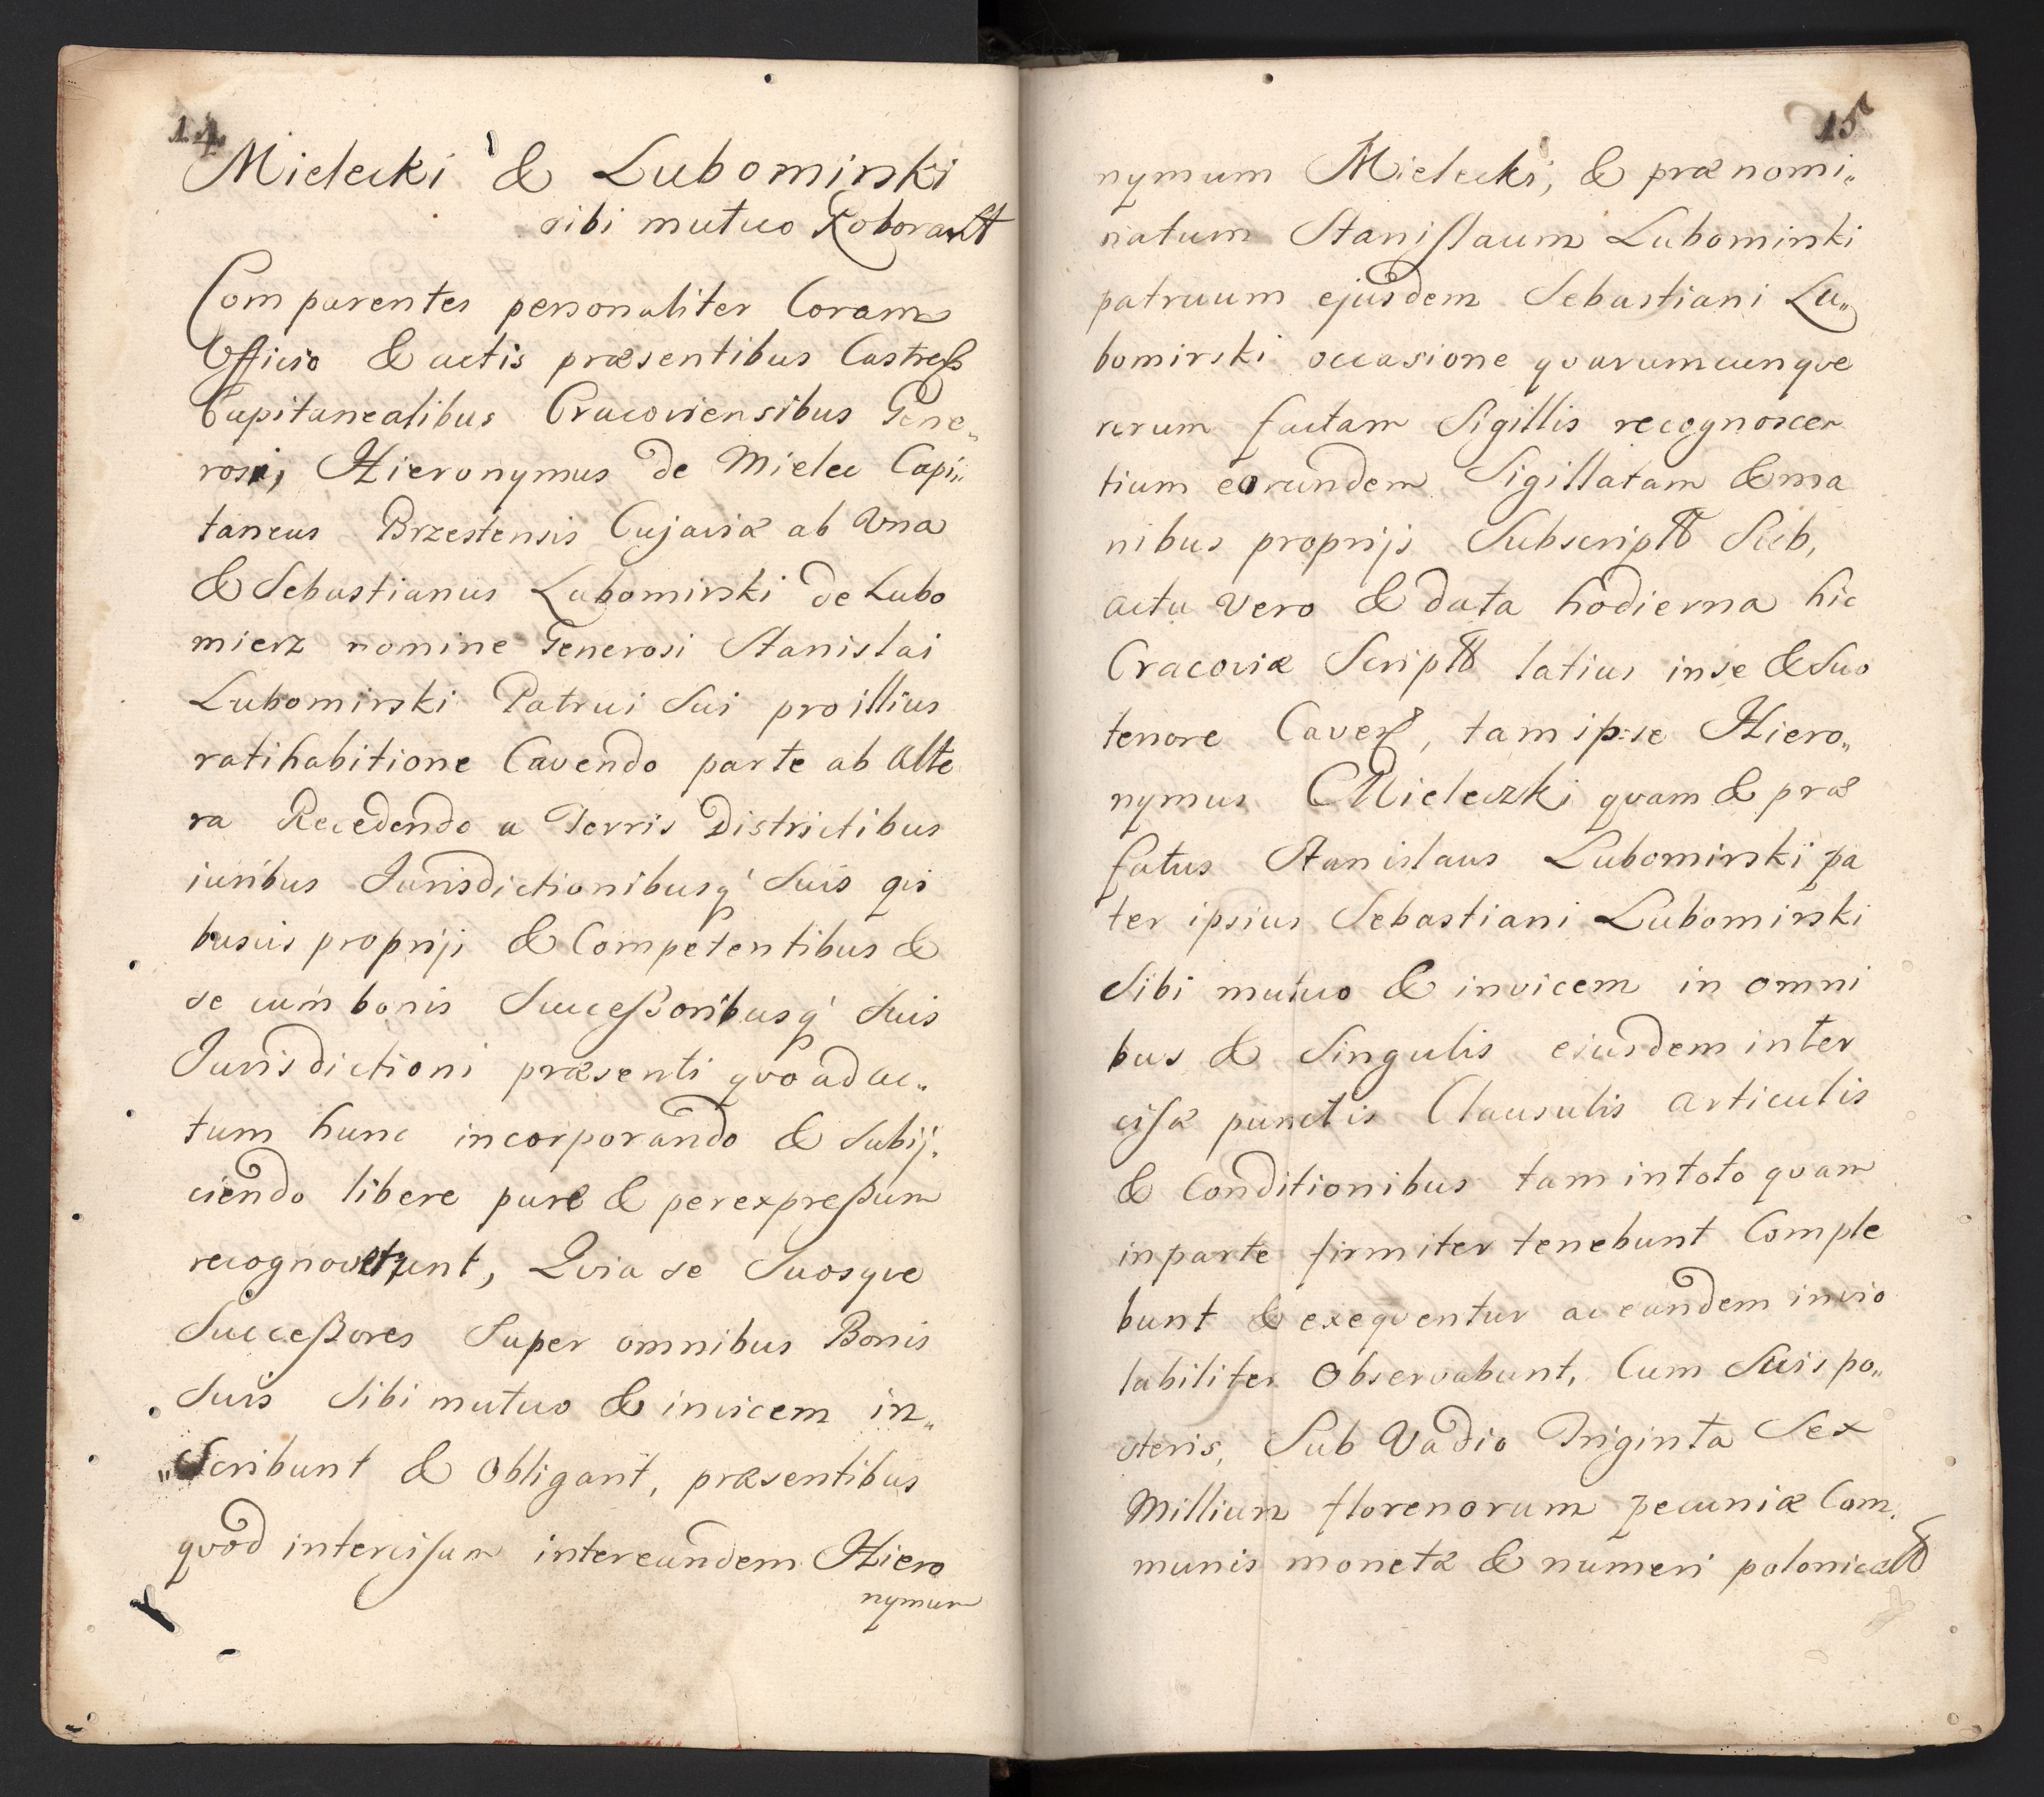 14
Mielecki & Lubomirski
sibi mutuo Roborant
Comparentes personaliter Coram
Officio & actis præsentibus Castreß
Capitanealibus Cracoviensibus Gene„
rosi, Hieronymus de Mielec Capi„
taneus Brzestensis Cujaviæ ab Vna
& Sebastianus Lubomirski de Lubo
mierz nomine Generosi Stanislai
Lubomirski Patrui Sui pro illius
ratihabitione Cavendo parte ab Alte
ra Recedendo a Terris Districtibus
iuribus Jurisdictionibusq' Suis qis
busuis proprijs & Competentibus &
se cum bonis Succeßoribusq' Suis
Jurisdictioni præsenti qvo ad ac„
tum hunc incorporando & Subij„
ciendo libere pure & per expreßum
recognoverunt, Qvia se Suosqve
Succeßores Super omnibus Bonis
Suis Sibi mutuo & invicem in„
„Scribunt & Obligant, præsentibus
qvod intercisam inter eundem Hiero
nymum
15
nymum Mielecki, & præ nomi„
natum Stanislaum Lubomirski
patruum ejusdem Sebastiani Lu„
bomirski occasione qvarumcunqve
rerum factam Sigillis recognoscen
tium eorundem Sigillatam & ma
nibus proprijs Subscript Sub,
actu vero & data hodierna hic
Cracoviæ Script latius in se & Suo
tenore Caven, tam ipse Hiero„
nymus Mieleczki qvam & præ
fatus Stanislaus Lubomirski pa
ter ipsius Sebastiani Lubomirski
Sibi mutuo & invicem in omni
bus & Singulis eiusdem inter
cisæ punctis Clausulis articulis
& Conditionibus tam in toto qvam
in parte firmiter tenebunt Comple
bunt & exeqventur ac eandem invio
labiliter Observabunt, Cum Suis po„
steris, Sub Vadio Triginta Sex
Millium florenorum pecuniæ Com„
munis monetæ & numeri polonical